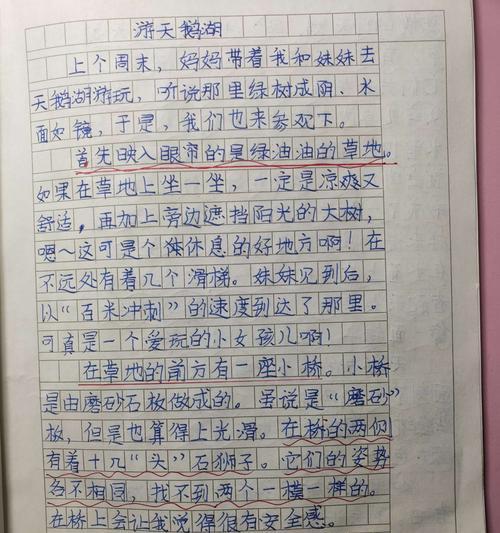 游天鹅湖
上个周末，妈妈带着我和妹妹去
天鹅湖游玩，听说那里绿树成阴、水
面如镜，于是，我们也来参观下。
首先映入眼帘的是绿油油的草地。
如果在草地上坐一坐，一定是凉爽又
舒适，再加上旁边遮挡阳光的大树，
嗯～这可是个休息的好地方啊！在
不远处有着几个滑梯。妹妹见到后，
以“百米冲刺”的速度到达了那里。
可真是一个爱玩的小女孩儿啊！
在草地的前方有一座小桥。小桥
是由磨砂石板做成的。虽说是“磨砂”
板，但是也算得上光滑。在桥的两侧
有着十几“头”石狮子。它们的姿势
各不相同，找不到两个一模一样的。
在桥上会让我觉得很有安全感。